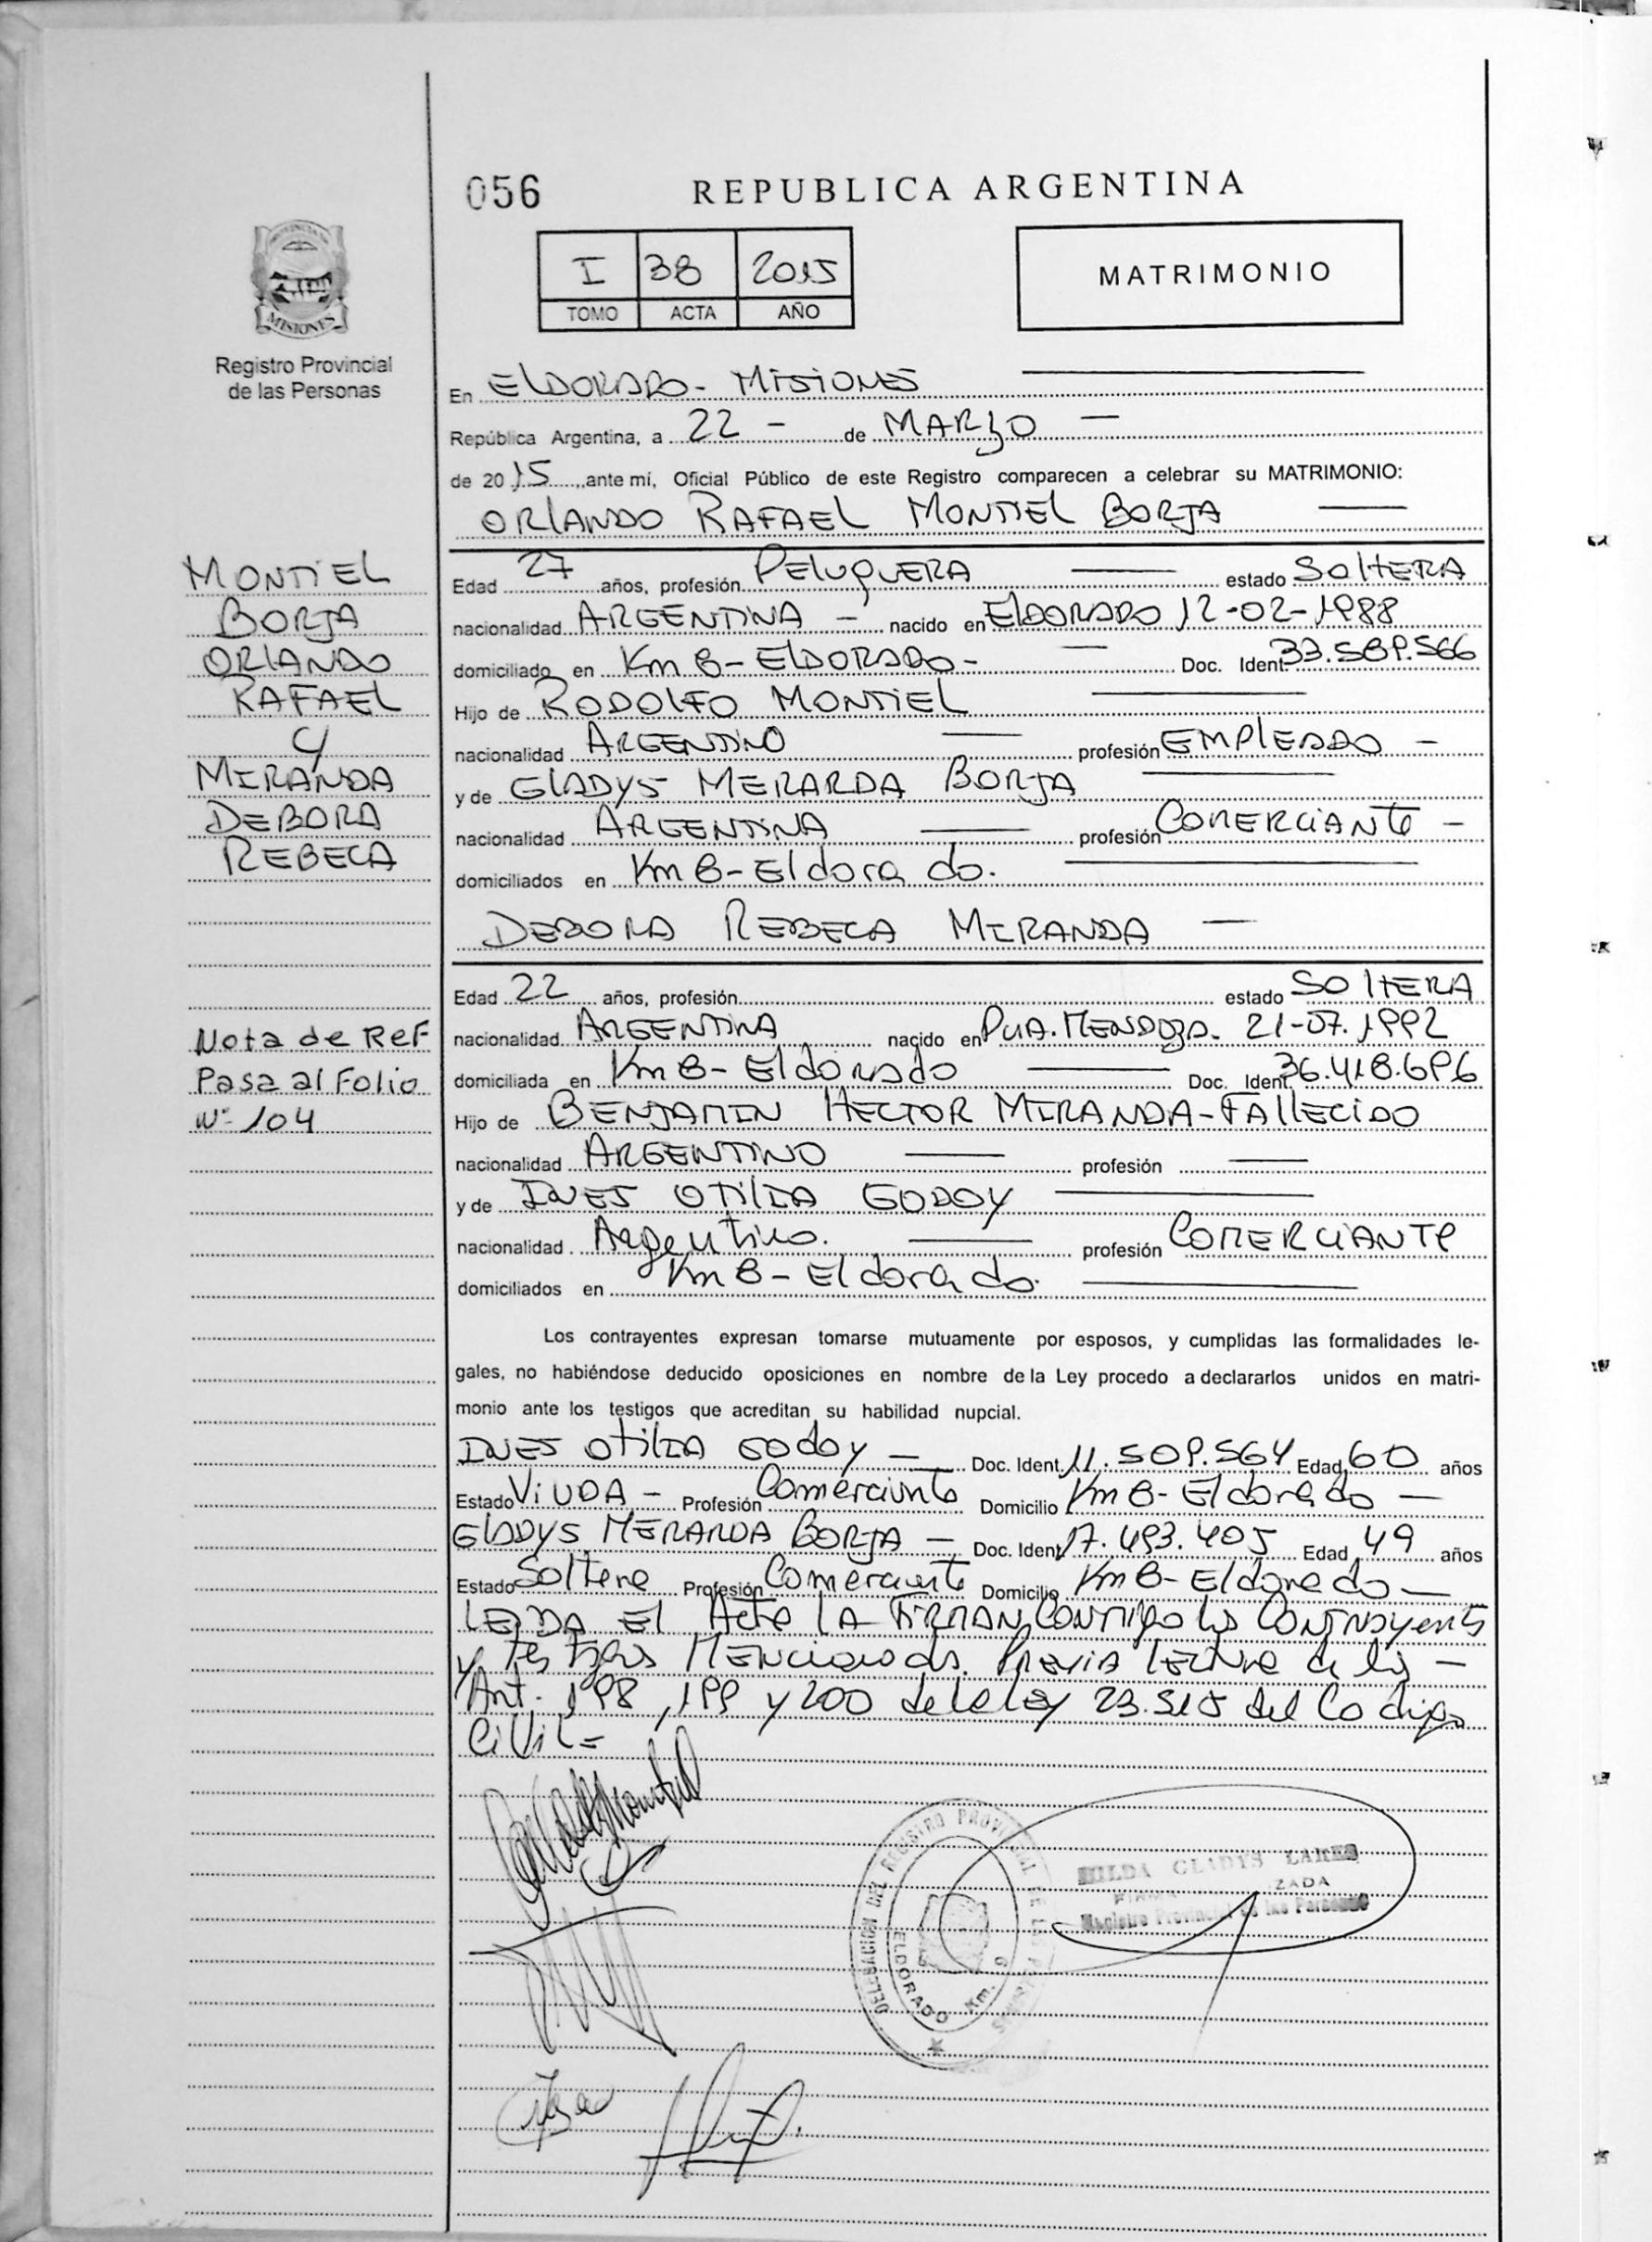 056
REPUBLICA ARGENTINA
PROVINCIA DE
MISIONES
Registro Provincial
de las Personas
I 38 2015
TOMO ACTA AÑO
MATRIMONIO
En ELDORADO - MISIONES
República Argentina, a 22 - de MARZO
de 2015, ante mí, Oficial Público de este Registro comparecen a celebrar su MATRIMONIO:
ORLANDO RAFAEL MONTIEL BORJA
MONTIEL
BORJA
ORLANDO
RAFAEL
C/
MIRANDA
DEBORA
REBECA
Edad 27 años, profesión PELUQUERA estado SOLTERA
nacionalidad ARGENTINA - nacido en ELDORADO 12-02-1988
domiciliado en Km 8 - ELDORADO - Doc. Ident. 33.589.566
Hijo de RODOLFO MONTIEL
nacionalidad ARGENTINO profesión EMPLEADO -
y de GLADYS MERARDA BORJA
nacionalidad ARGENTINA profesión COMERCIANTE -
domiciliados en Km 8 - Eldorado.
DEBORA REBECA MIRANDA
Edad 22 años, profesión estado SOLTERA
nacionalidad ARGENTINA nacido en PCIA. MENDOZA. 21-07.1992
domiciliada en Km 8 - Eldorado Doc. Ident. 36.418.696
Hijo de BENJAMIN HECTOR MIRANDA - FALLECIDO
nacionalidad ARGENTINO profesión
y de INES OTILIA GODOY
nacionalidad Argentina. profesión COMERCIANTE
domiciliados en Km 8 - Eldorado.
Nota de Ref
Pasa al Folio
Nº 104
Los contrayentes expresan tomarse mutuamente por esposos, y cumplidas las formalidades le-
gales, no habiéndose deducido oposiciones en nombre de la Ley procedo a declararlos unidos en matri-
monio ante los testigos que acreditan su habilidad nupcial.
INES OTILIA GODOY - Doc. Ident. 11.509.564 Edad 60 años
Estado VIUDA - Profesión Comerciante Domicilio Km 8 - Eldorado -
GLADYS MERARDA BORJA - Doc. Ident. 17.493.405 Edad 49 años
Estado Soltera Profesión Comerciante Domicilio Km 8 - Eldorado -
LEIDA El Acta LA FIRMAN CONMIGO los CONTRAYENTES
y Testigos MENCIONADOS. PREVIA lectura de los -
Art. 198, 199 y 200 de la ley 23.515 del Codigo
Civil =
DELEGACION DEL REGISTRO PROVINCIAL DE LAS PERSONAS
ELDORADO Km. 9
HILDA GLADYS LARES
Registro Provincial de las Personas